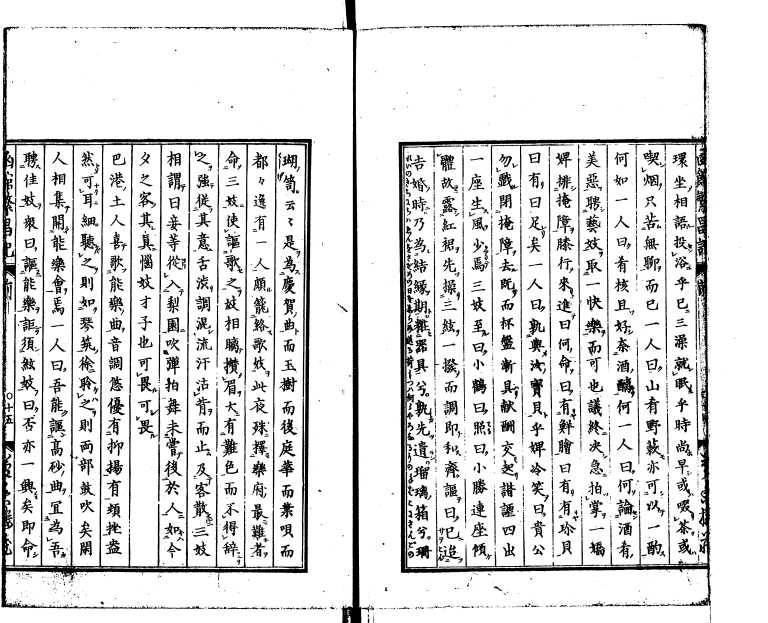 環坐相語投浴乎巳三澡就眠乎時尚早或啜茶或
喫烟只苦無聊而已一人曰山有野蔌亦可以一酌
何如一人曰肴核且好奈酒醨何一人曰何論酒肴
美惡聘藝妓取一快樂而可也議終决急拍掌一媚
婢排掩障膝行來進曰何命曰有鮮膾曰有有珍貝
曰有曰足矣一人曰孰與汝寶貝乎婢冷笑曰貴公
勿戲閉掩障去既而杯盤漸具献酬交起諧謳四出
一座生風少焉三妓至曰小鶴曰照曰小勝連座傾
體故露紅裙先操三絃一撥而調即和齊謳曰巳追
吉婚時乃為結縁期雛器具兮孰先遺瑠璃箱兮珊
瑚笥云云是為慶賀曲而玉樹而後庭華而葉唄而
都々逸有一人頗籠絡歌妓此夜殊擇樂府最難者
命三妓使謳歌之妓相矚攅眉大有難色而不得辭
之強從其意舌渋調混流汗沾背而止及客散三妓
相謂曰妾等從入梨園吹彈拍舞未嘗後於人如今
夕之客其真惱妓才子也可畏可畏
巴港土人喜歌能樂曲音調悠優有抑揚有頓挫盎
然可耳細聽之則如琴筑徐聆之則両部鼓吹矣閑
人相集開能樂會焉一人曰吾能謳高砂曲宜為吾
聘佳妓衆曰謳能樂詎須絃妓曰否亦一興矣即命
〇十五